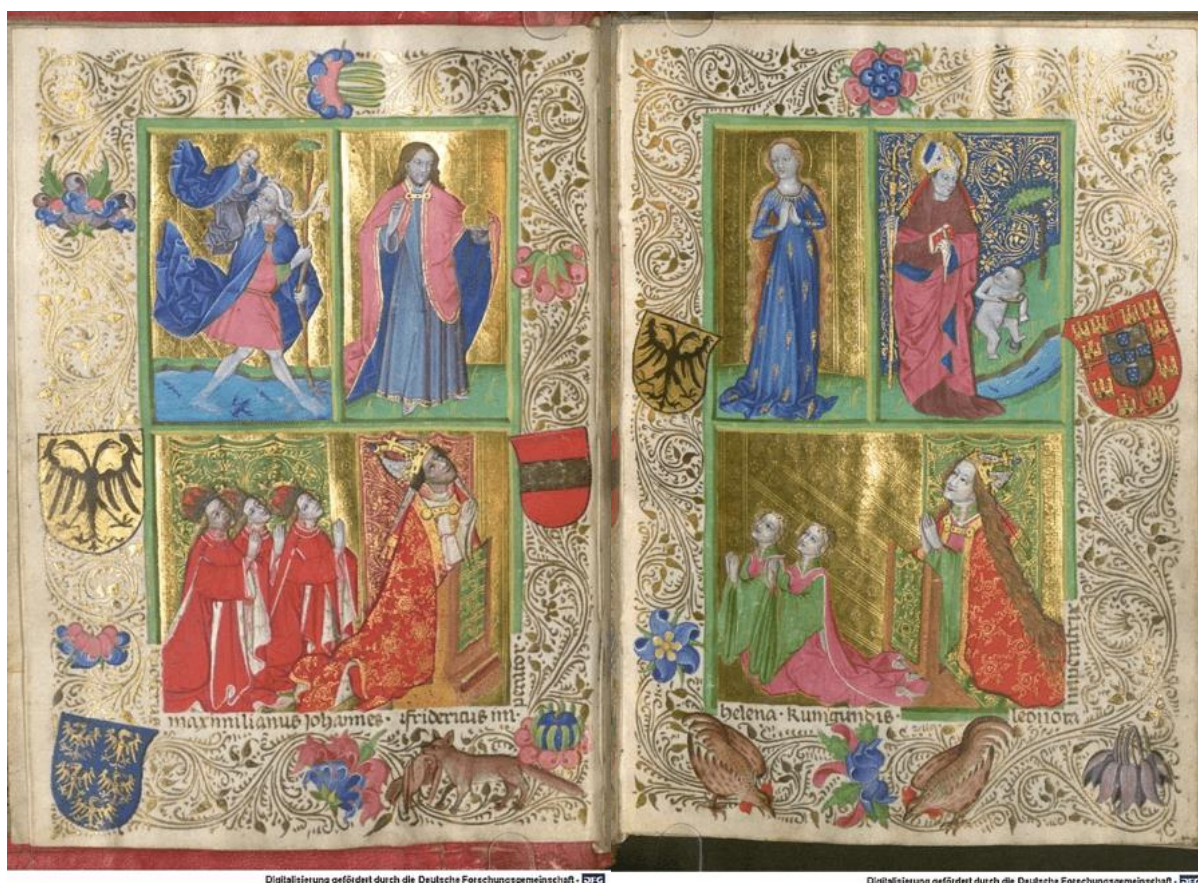 maxmilianus Johannes · fridericus im
perator
helena · kunigundis · leonora
Digitalisierung gefördert durch die Deutsche Forschungsgemeinschaft - DFG
Digitalisierung gefördert durch die Deutsche Forschungsgemeinschaft - DFG